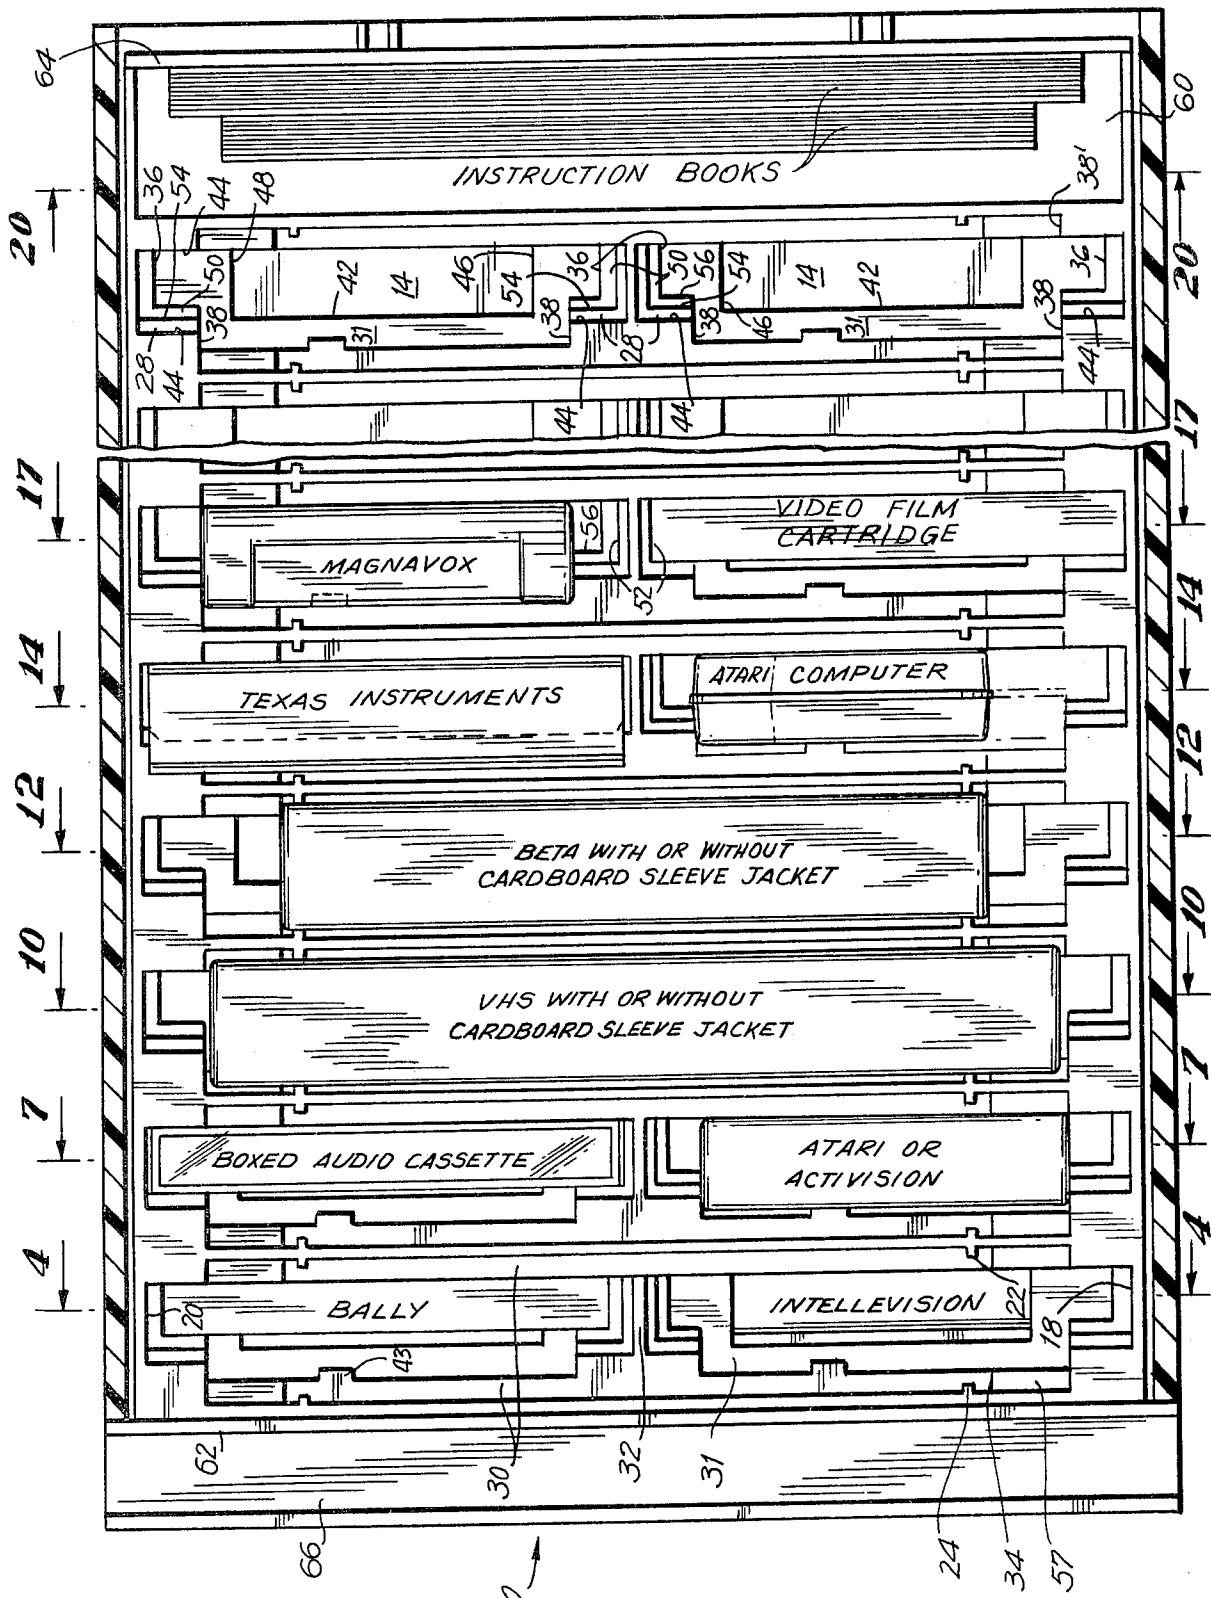 64
INSTRUCTION BOOKS
60
20
36
54
44
48
38'
20
50
42
14
46
54
36
50
56
54
14
42
36
28
44
38
31
38
28
38
46
31
38
44
44
44
17
17
MAGNAVOX
56
52
VIDEO FILM
CARTRIDGE
14
14
TEXAS INSTRUMENTS
ATARI COMPUTER
12
12
BETA WITH OR WITHOUT
CARDBOARD SLEEVE JACKET
10
10
VHS WITH OR WITHOUT
CARDBOARD SLEEVE JACKET
7
7
BOXED AUDIO CASSETTE
ATARI OR
ACTIVISION
4
4
20
BALLY
INTELLEVISION
22
18
43
62
30
32
31
66
24
34
57